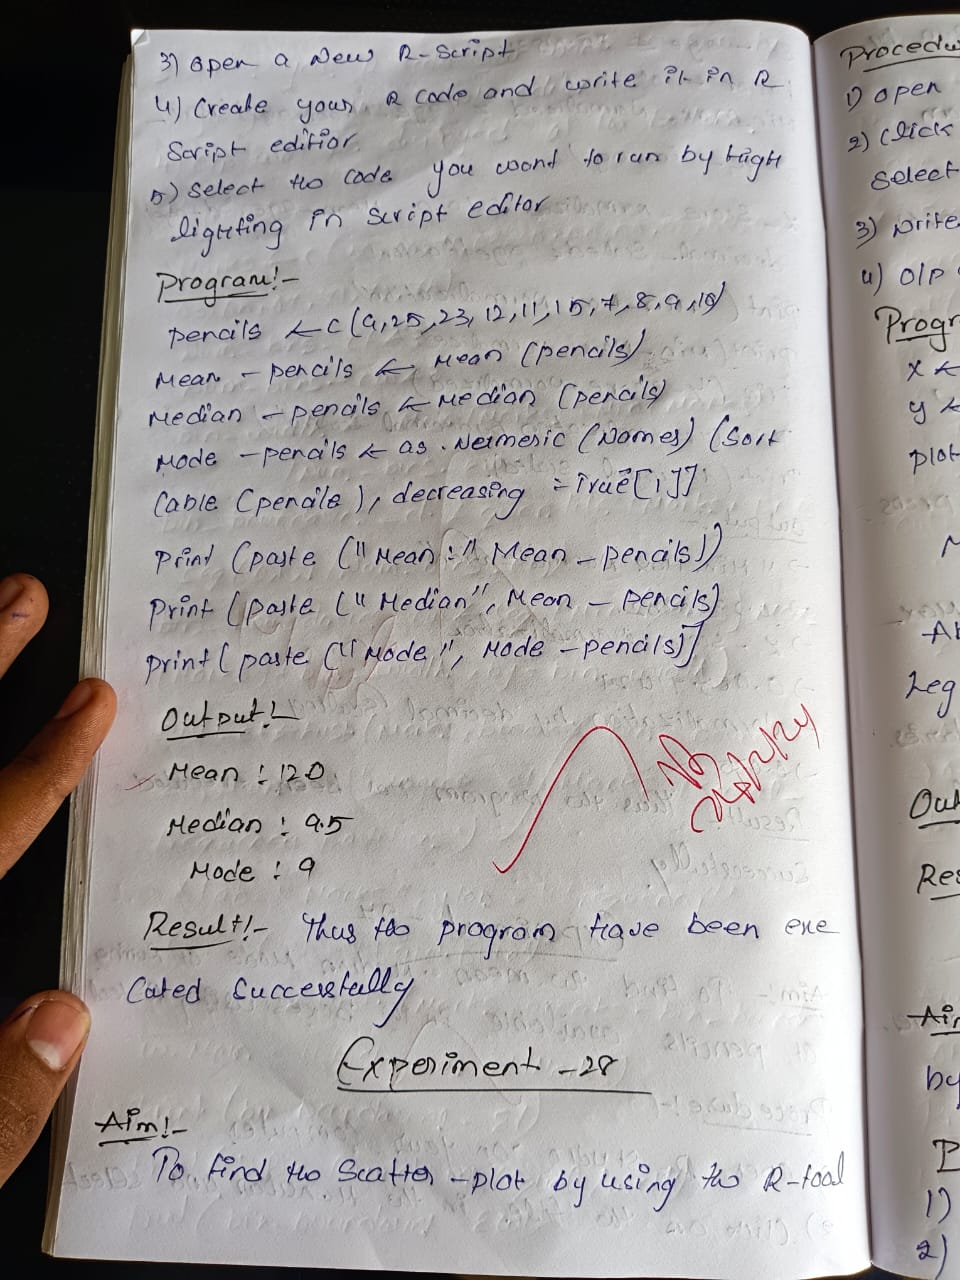 3) Open a New R-Script
4) Create your R code and write it in R
Script editior
5) Select tho code you wont to run by high
lighting in script editor
Program!-
pencils <- c(9,25,23,12,11,15,7,8,9,10)
Mean - pencils <- Mean (pencils)
Median - pencils <- Median (pencils)
Mode - pencils <- as . Numeric (Names) (Sort
(able (pencile), decreasing = True[1]]
Print (paste ("Mean:" Mean - pencils))
Print (paste ("Median", Mean - pencils)
print( paste ("Mode", Mode - pencils)]
Output!-
Mean : 120
Median : 9.5
Mode : 9
Result!- Thus tho program have been exe
cated Successtully
Experiment - 28
Aim!-
To find tho Scatter - plot by using tho R-tool
Procedu
1) open
2) Click
Select
3) write
4) O/P
Progr
x <
y <
plot
Leg
Out
Res
Air
by
1)
2)